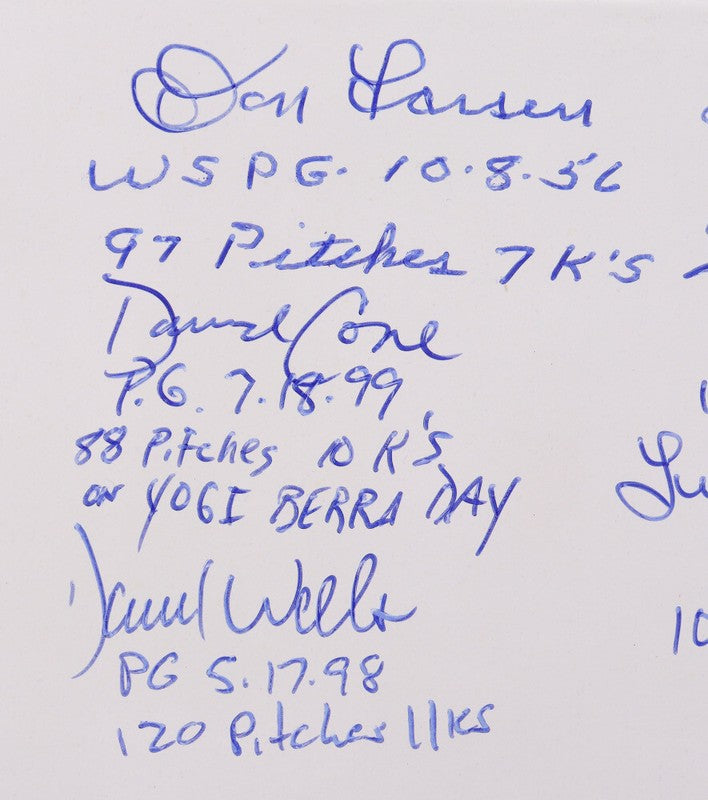 Don Larsen
WSPG. 10.8.56
97 Pitches 7 K'S
David Cone
P.G. 7.18.99
88 Pitches 10 K'S
on YOGI BERRA DAY
David Wells
PG 5.17.98
120 Pitches 11KS
10